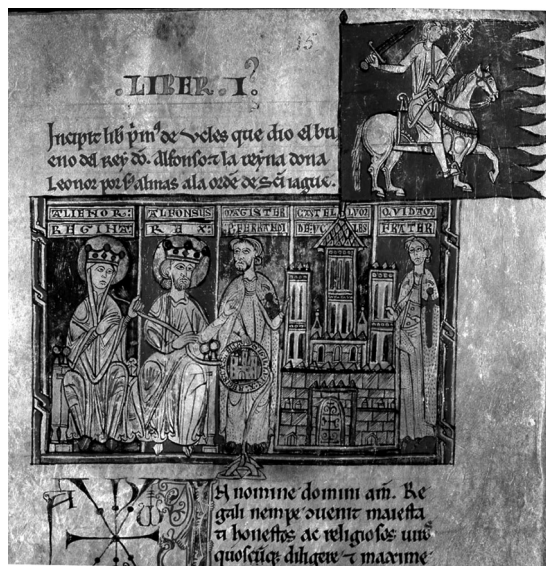 15
.LIBER.I.
Incipit lib p̄mº de Veles que dio el bu
eno del Rey dō. Alfonso ⁊ la reyna dona
Leonor por sꝰ almas a la ordē de Sc̄i iague.
ALIENOR: ALFONSUS MAGISTER CASTELLVO
REGINA: REX: P. FERRANDI DE: VCLES FRATER
A ω
IN nomine domini am̄. Re
gali nempe ꝯuenit maiesta
ti honestos ac religiosos uiros
quoscūq; diligere ⁊ maxime